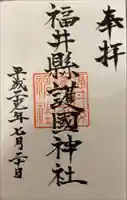 奉拝
福井縣護國神社
平成二十一年七月二十日